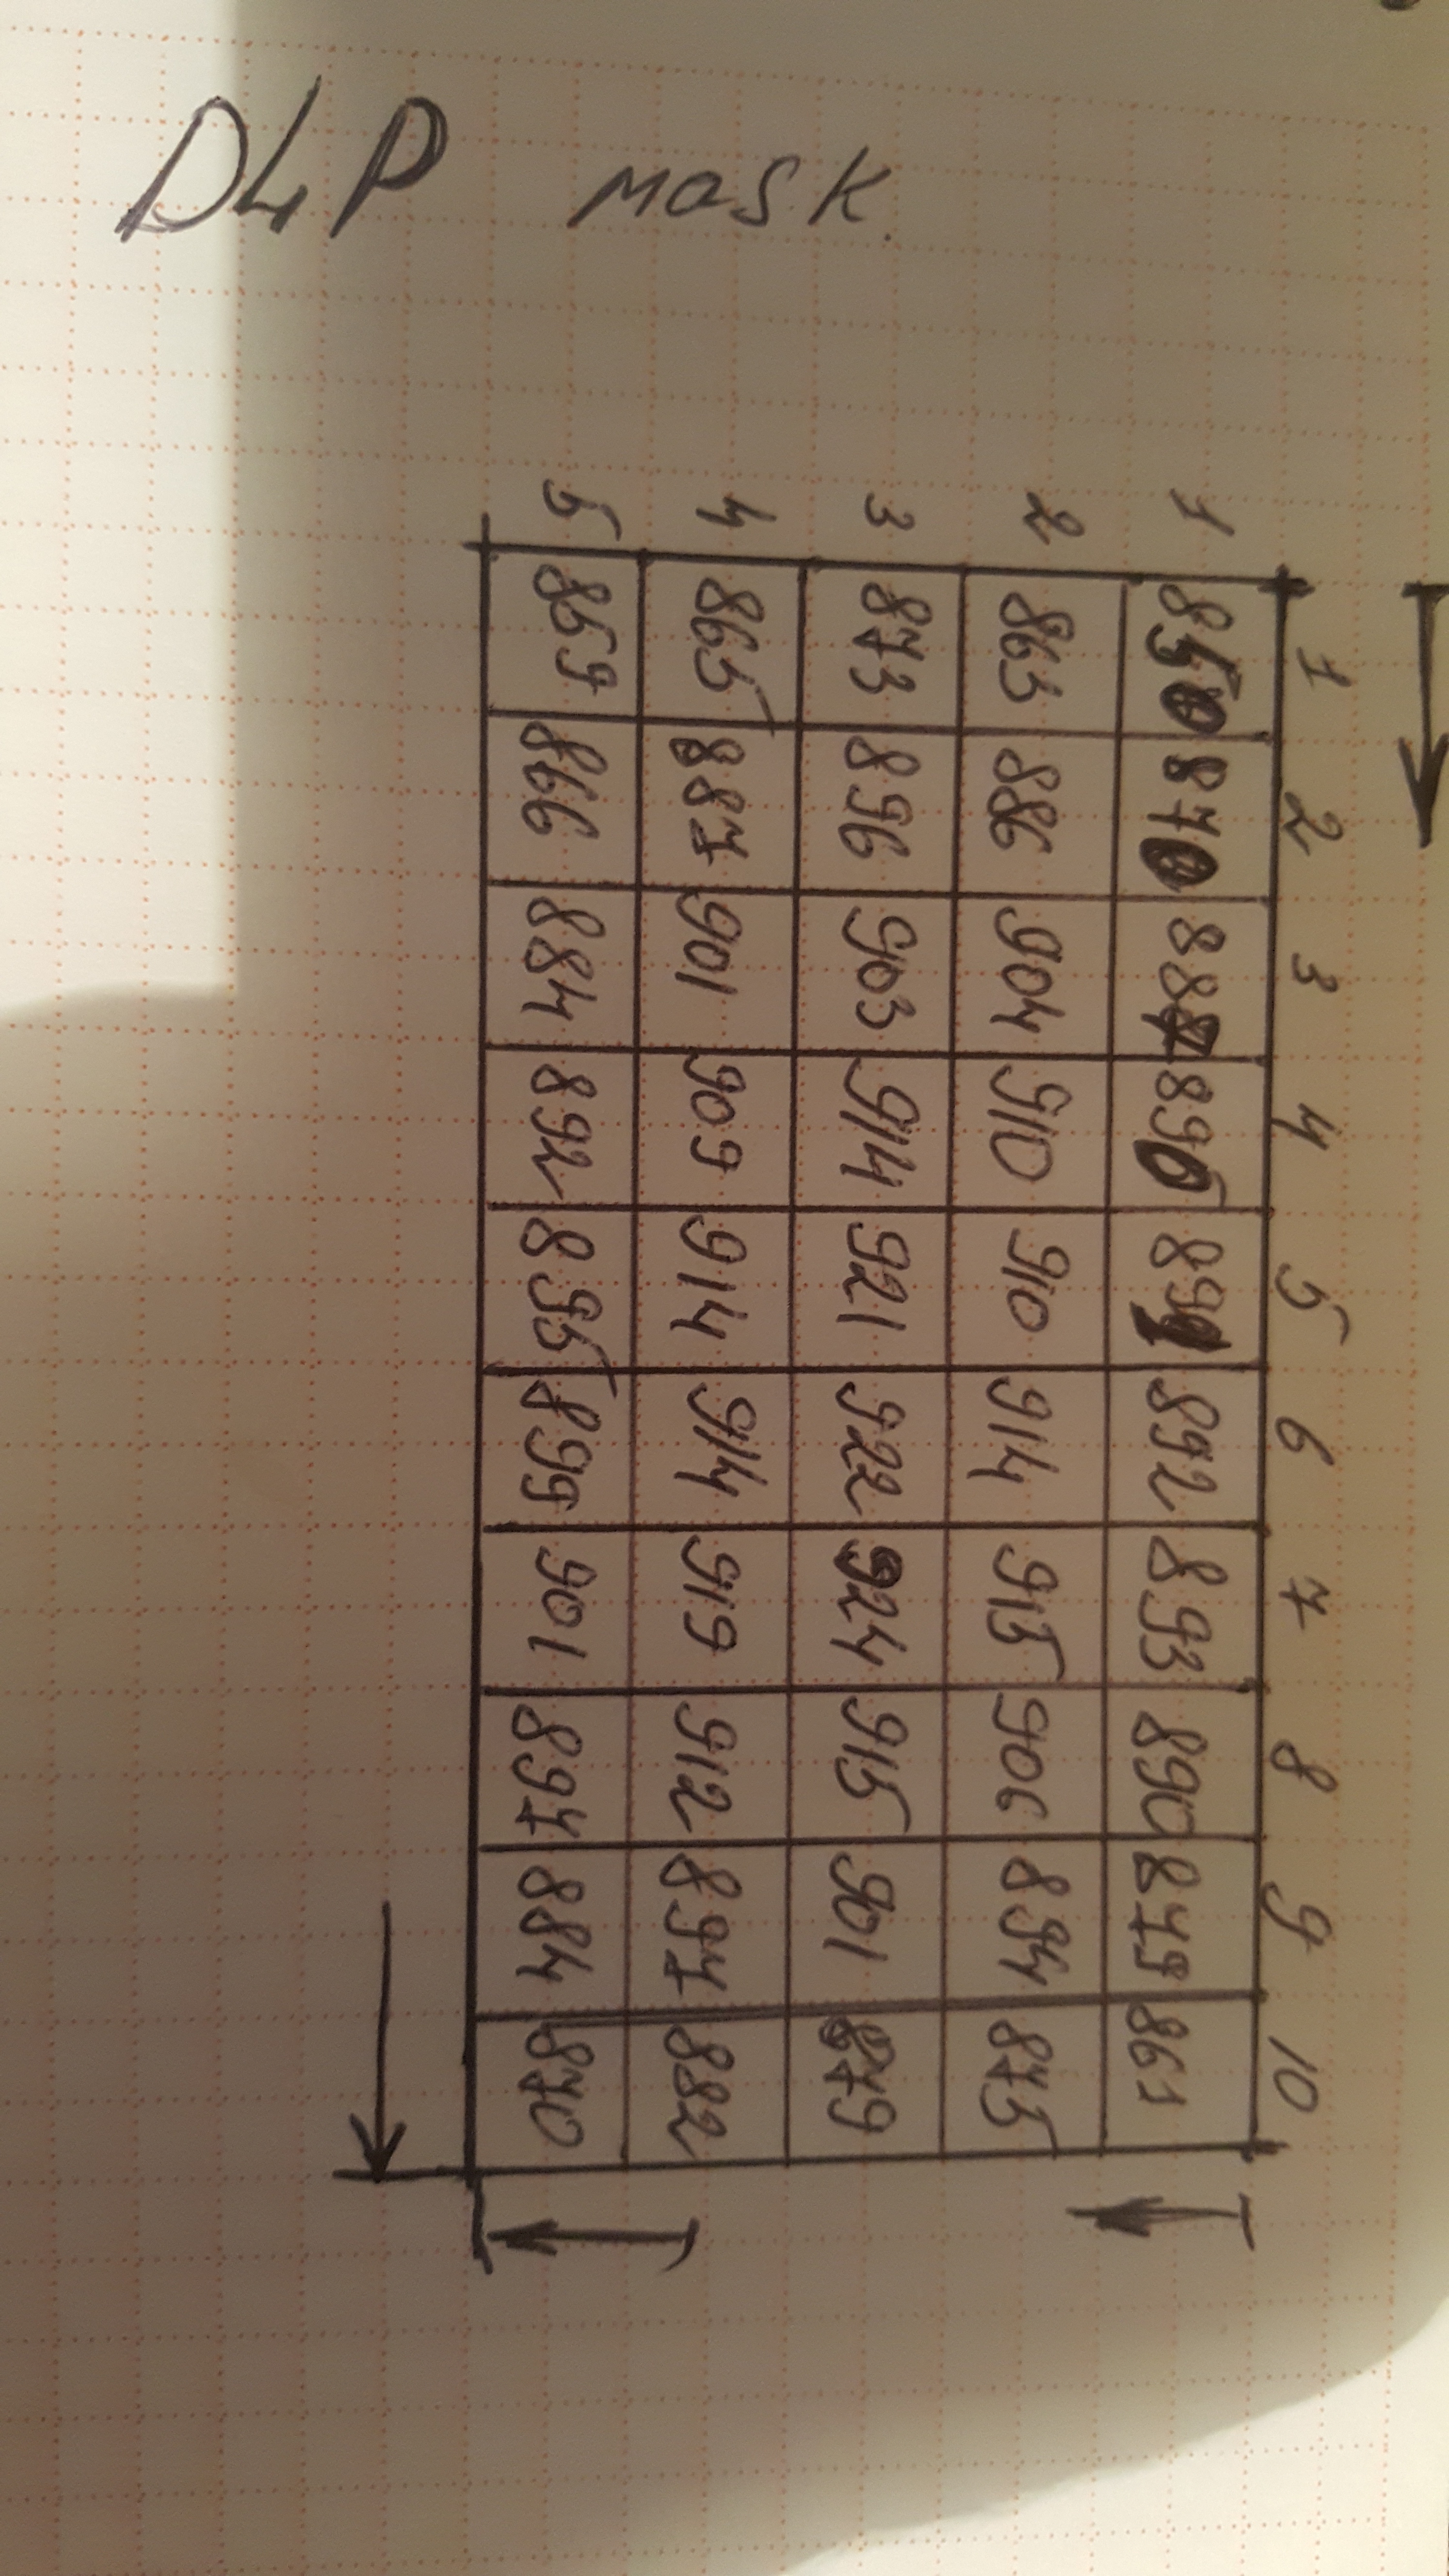 DLP mask.
1 2 3 4 5 6 7 8 9 10
1 850 870 887 890 891 892 893 890 879 861
2 863 886 904 910 910 914 915 906 894 875
3 873 896 903 914 921 922 924 915 901 879
4 865 887 901 909 914 914 919 912 897 882
5 859 866 884 892 895 899 901 897 884 870